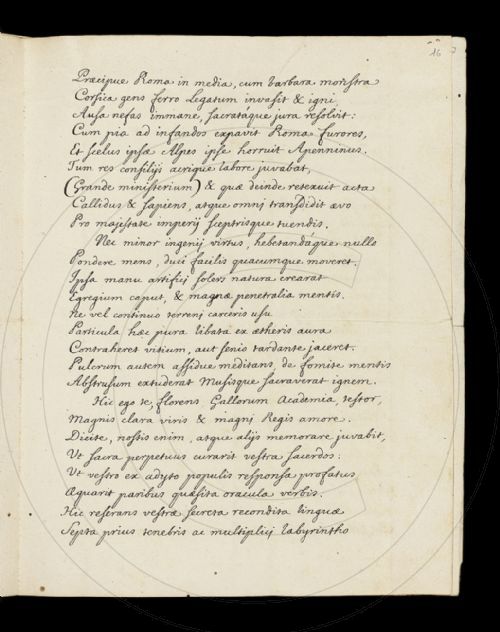 16
Præcipue Roma in media, cum barbara monstra
Corsica gens ferro Legatum invasit & igni,
Ausa nefas immane, sacratáque jura resolvit:
Cum pia ad infandos expavit Roma furores,
Et scelus ipsæ Alpes ipse horruit Apenninus.
Tum res consilijs acrique labore juvabat,
(Grande ministerium) & quæ deinde retexuit acta
Callidus & sapiens, atque omnj transdidit ævo
Pro majestate imperij sceptrisque tuendis.
Nec minor ingenij virtus, hebetandáque nullo
Pondere mens, duci facilis quacumque moveret.
Ipsa manu artificj solers natura crearat
Egregium caput, & magnæ penetralia mentis.
Ne vel continuo terrenj carceris usu
Particula hæc pura libata ex ætheris aura
Contraheret vitium, aut senio tardante jaceret.
Pulcrum autem assidue meditans, de fomite mentis
Abstrusum extuderat Musisque sacraverat ignem.
Hic ego te, florens Gallorum Academia, testor,
Magnis clara viris & magnj Regis amore.
Dicite, nostis enim, atque alijs memorare juvabit,
Ut sacra perpetuus curarit vestra sacerdos:
Ut vestro ex adyto populis responsa profatus
Æquarit paribus quæsita oracula verbis.
Hic reserans vestræ secreta recondita linguæ
Septa prius tenebris ac multiplicj labyrintho